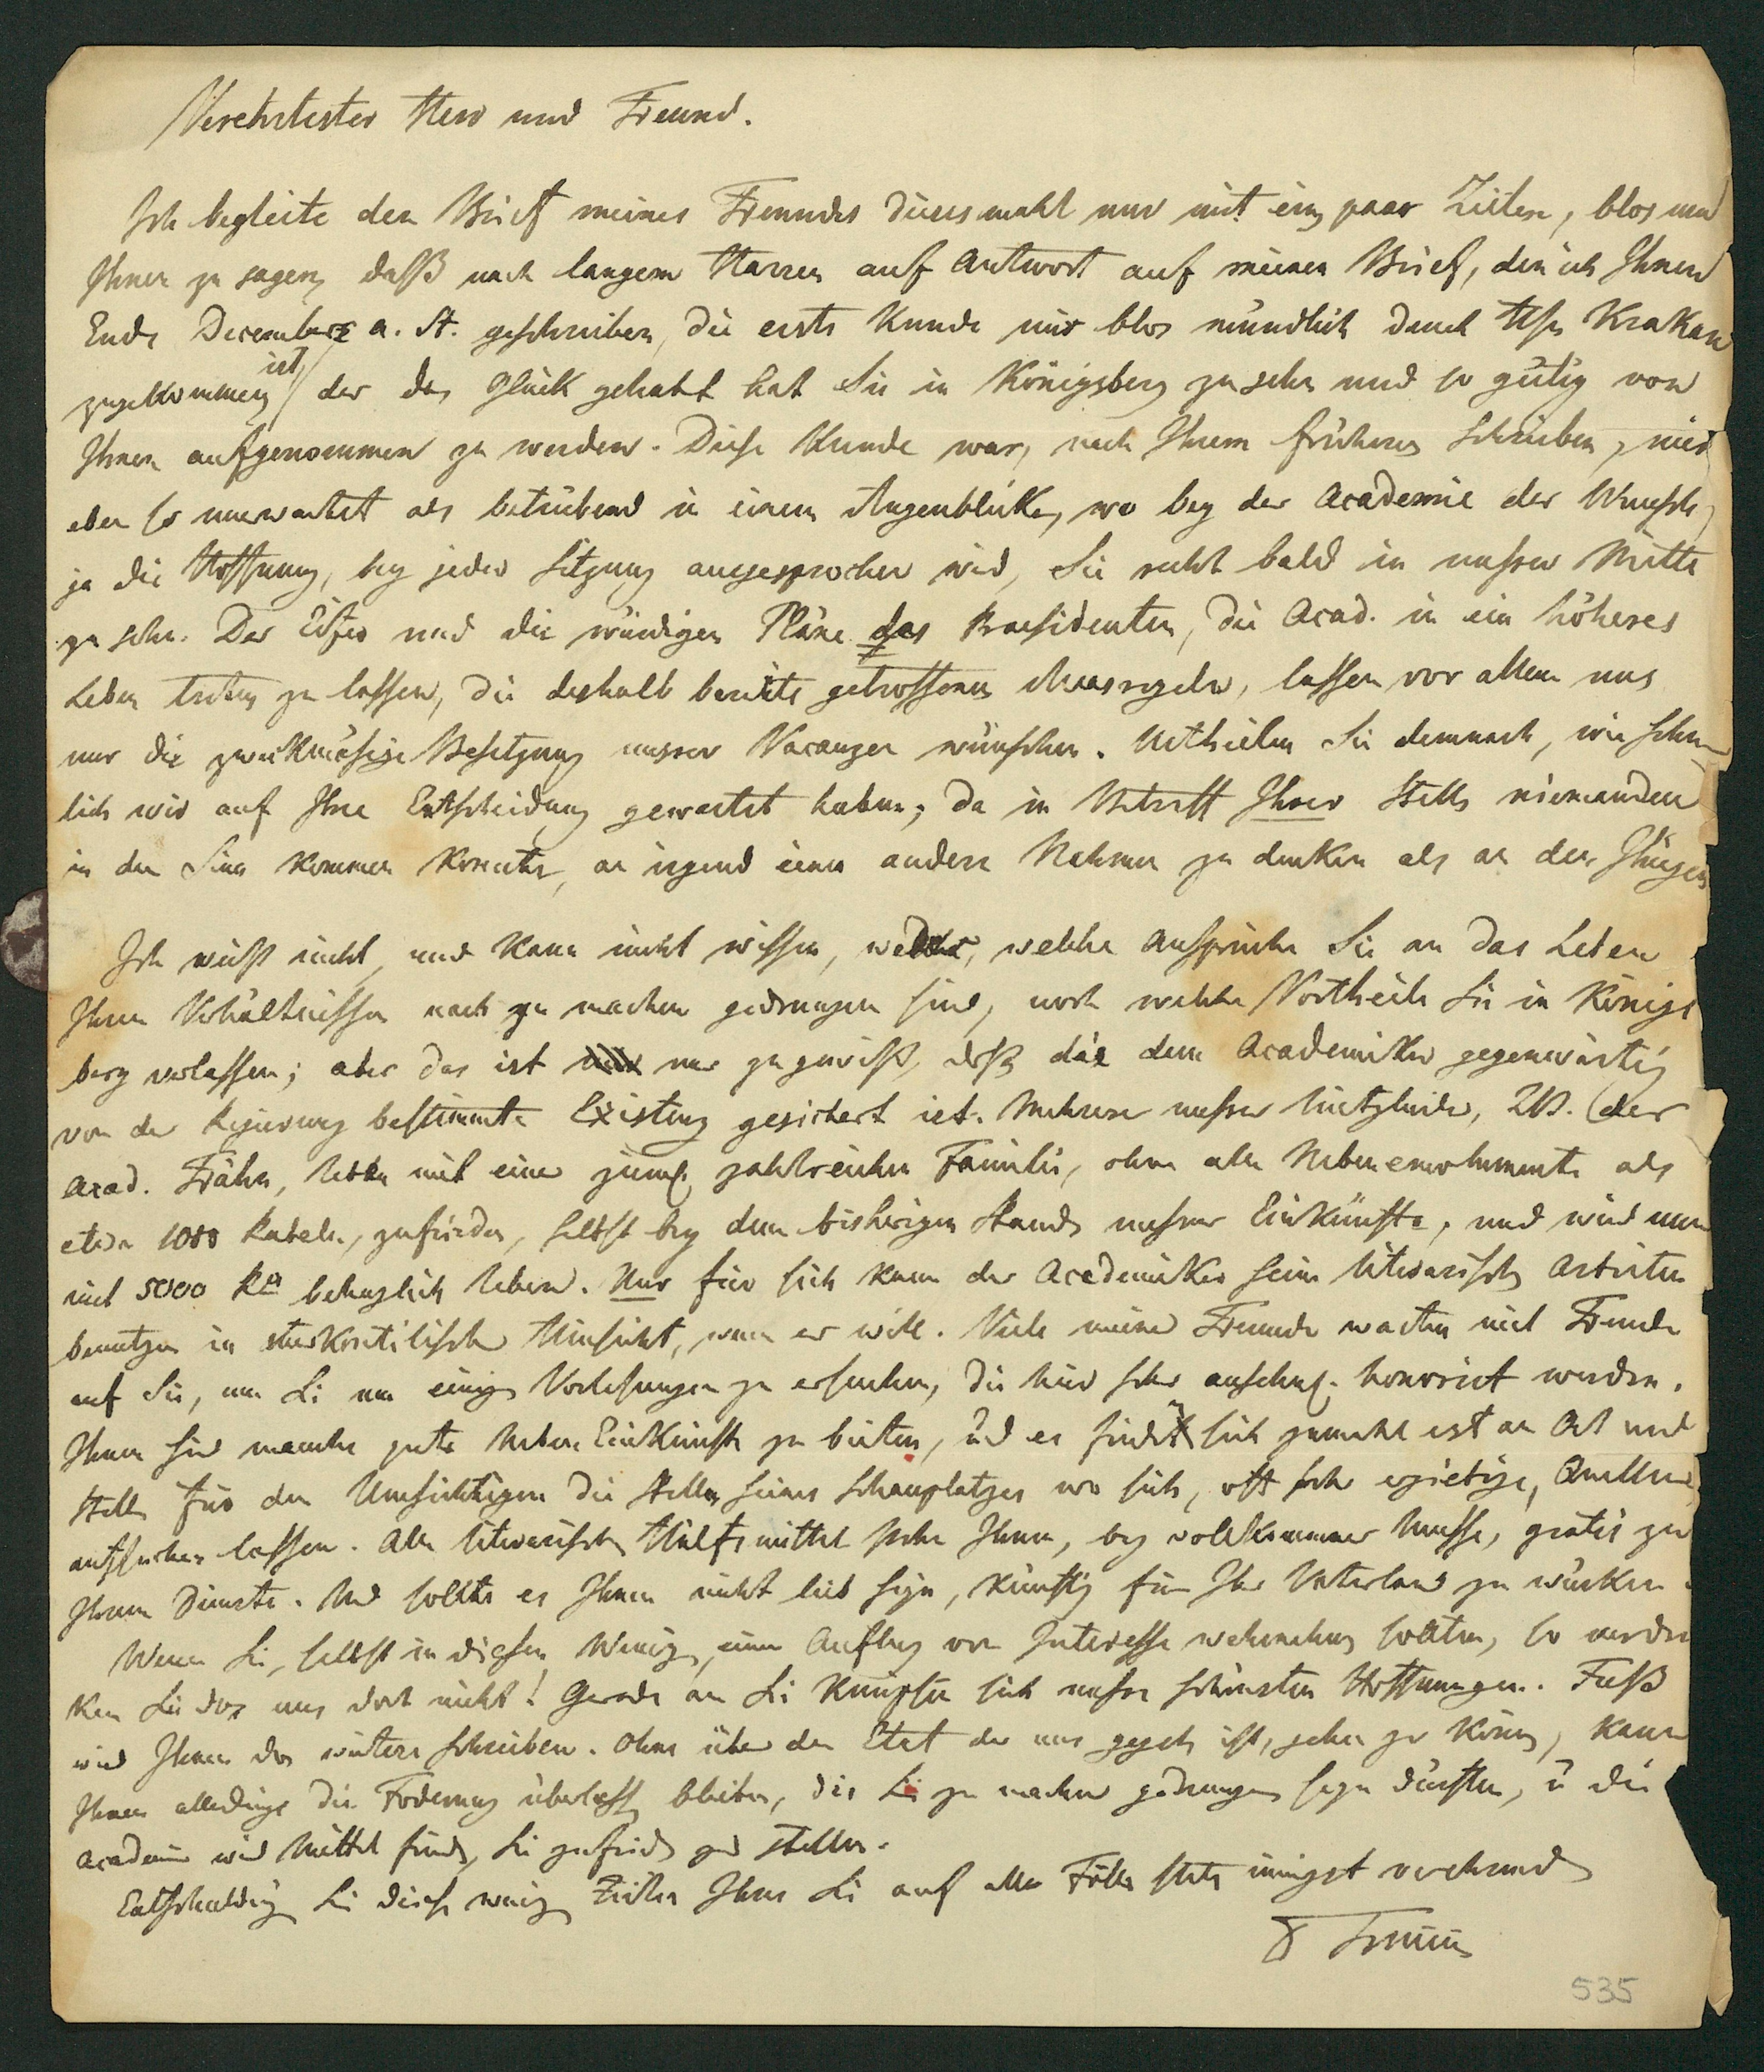 Verehrtester Herr und Freund.
Ich begleite den Brief meines Freundes diessmahl nur mit ein paar Zeilen, blos um
Ihnen zu sagen, daß nach langem Harren auf Antwort auf meinen Brief, den ich Ihnen
Ende Decembers a. St. geschrieben, die erste Kunde mir blos mündlich durch Hfn Krakau
zugekommen ist, der das Glück gehabt hat Sie in Königsberg zu sehn und so gütig von
Ihnen aufgenommen zu werden. Diese Kunde war, nach Ihrem früheren Schreiben, mir
eben so unerwartet als betrübend in einem Augenblicke, wo bey der Academie der Wunsch,
ja die Hoffnung, bey jeder Sitzung ausgesprochen wird, Sie recht bald in unsrer Mitte
zu sehn. Der Eifer und die würdigen Pläne des Praesidenten, die Acad. in ein höheres
Leben treten zu lassen, die deshalb bereits getroffenen Maasregeln, lassen vor allem uns
nur die zweckmäsige Besetzung unsrer Vacanzen wünschen. Urtheilen Sie demnach, wie sehn
lich wir auf Ihre Entscheidung gewartet haben; da in Betreff Ihrer Stelle niemanden
in den Sinn kommen konnte, an irgend einen andern Nahmen zu denken als an den Ihrigen
Ich weiß nicht, und kann nicht wissen, welche Ansprüche Sie an das Leben
Ihren Verhältnissen nach zu machen gedrungen sind, noch welche Vortheile Sie in Königs
berg verlassen; aber das ist nur zu gewiß, daß die dem Academiker gegenwärtig
von der Regierung bestimmte Existenz gesichert ist. Mehrere unsrer Mitglieder, ZB. der
Acad. Frähn, lebten mit einer ziemf. zahlreichen Familie, ohne alle Nebenemolumente als
etwa 1000 Rubeln, zufrieden, selbst bey dem bisherigen Stande unsrer Einkünfte, und wird nun
mit 5000 Rn behaglich leben. Nur für sich kann der Academiker seine literarischen Arbeiten
benutzen in merkantilischer Hinsicht, wenn er will. Viele meiner Freunde warten mit Freude
auf Sie, um Sie um einige Vorlesungen zu ersuchen, die hier sehr ansehnf. honorirt werden.
Ihnen sind manche gute Neben-Einkünfte zu bieten, und es findet sich zumahl erst an Ort und
Stelle für den Umsichtigen die Stellen seines Schauplatzes wo sich, oft sehr ergiebige, Quellen
aufsuchen lassen. Alle literarischen Hülfsmittel stehn Ihnen, bey vollkommner Musse, gratis zu
Ihrem Dienste. Und sollte es Ihnen nicht lieb seyn, künftig für Ihr Vaterland zu würken.
Wenn Sie, selbst in diesen Wenigen, einen Anflug von Interesse wahrnehmen sollten, so verden
ken Sie das uns doch nicht! Gerade an Sie knüpfen sich unsre schönsten Hoffnungen. Fuß
wird Ihnen das weitere schreiben. Ohne über den Etat der uns gegeben ist, gehen zu können, kann
Ihnen allerdings die Foderung überlassen bleiben, die Sie zu machen gedrungen seyn dürften, u die
Academie wird Mittel finden, Sie zufrieden zu stellen.
Entschuldigen Sie diese wenigen Zeilen Ihres Sie auf alle Fälle stets innigst verehrenden
535